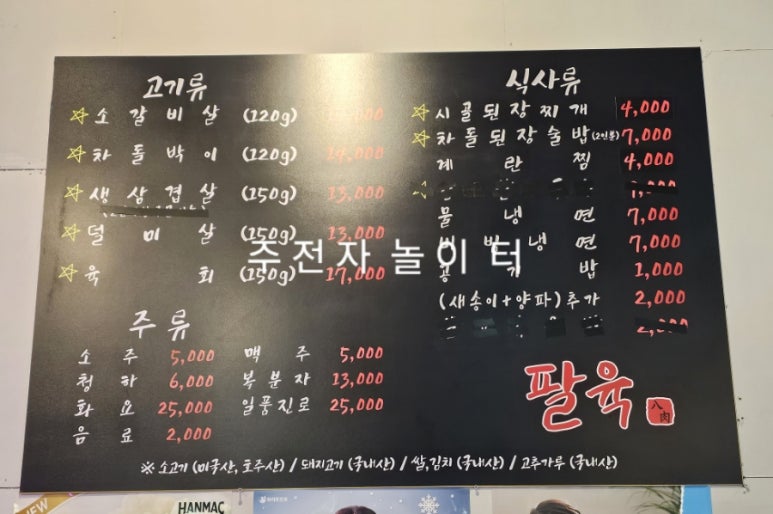 고기류
☆ 소갈비살 (120g)
☆ 차돌박이 (120g) 14,000
☆ 생삼겹살 (150g) 13,000
☆ 덜미살 (150g) 13,000
☆ 육회 (150g) 17,000
주류
소주 5,000 맥주 5,000
청하 6,000 복분자 13,000
화요 25,000 일품진로 25,000
음료 2,000
식사류
☆ 시골된장찌개 4,000
☆ 차돌된장술밥(2인분) 7,000
계란찜 4,000
물냉면 7,000
비빔냉면 7,000
공기밥 1,000
(새송이+양파)추가 2,000
팔육
八肉
※ 소고기 (미국산, 호주산) / 돼지고기 (국내산) / 쌀,김치 (국내산) / 고추가루 (국내산)
주전자 놀이터
NEW
HANMAC